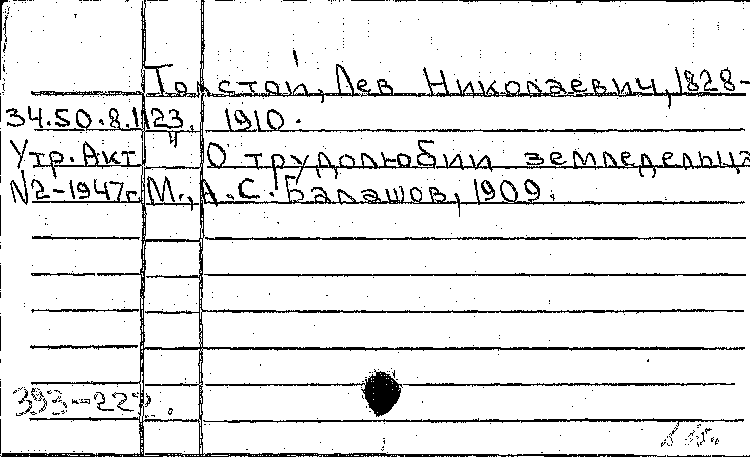 Толстой, Лев Николаевич, 1828-
34.50.8.1123. 1910.
Утр. Акт О трудолюбии земледельца
N2-1947г. М., А.С. Балашов, 1909.
393-222.